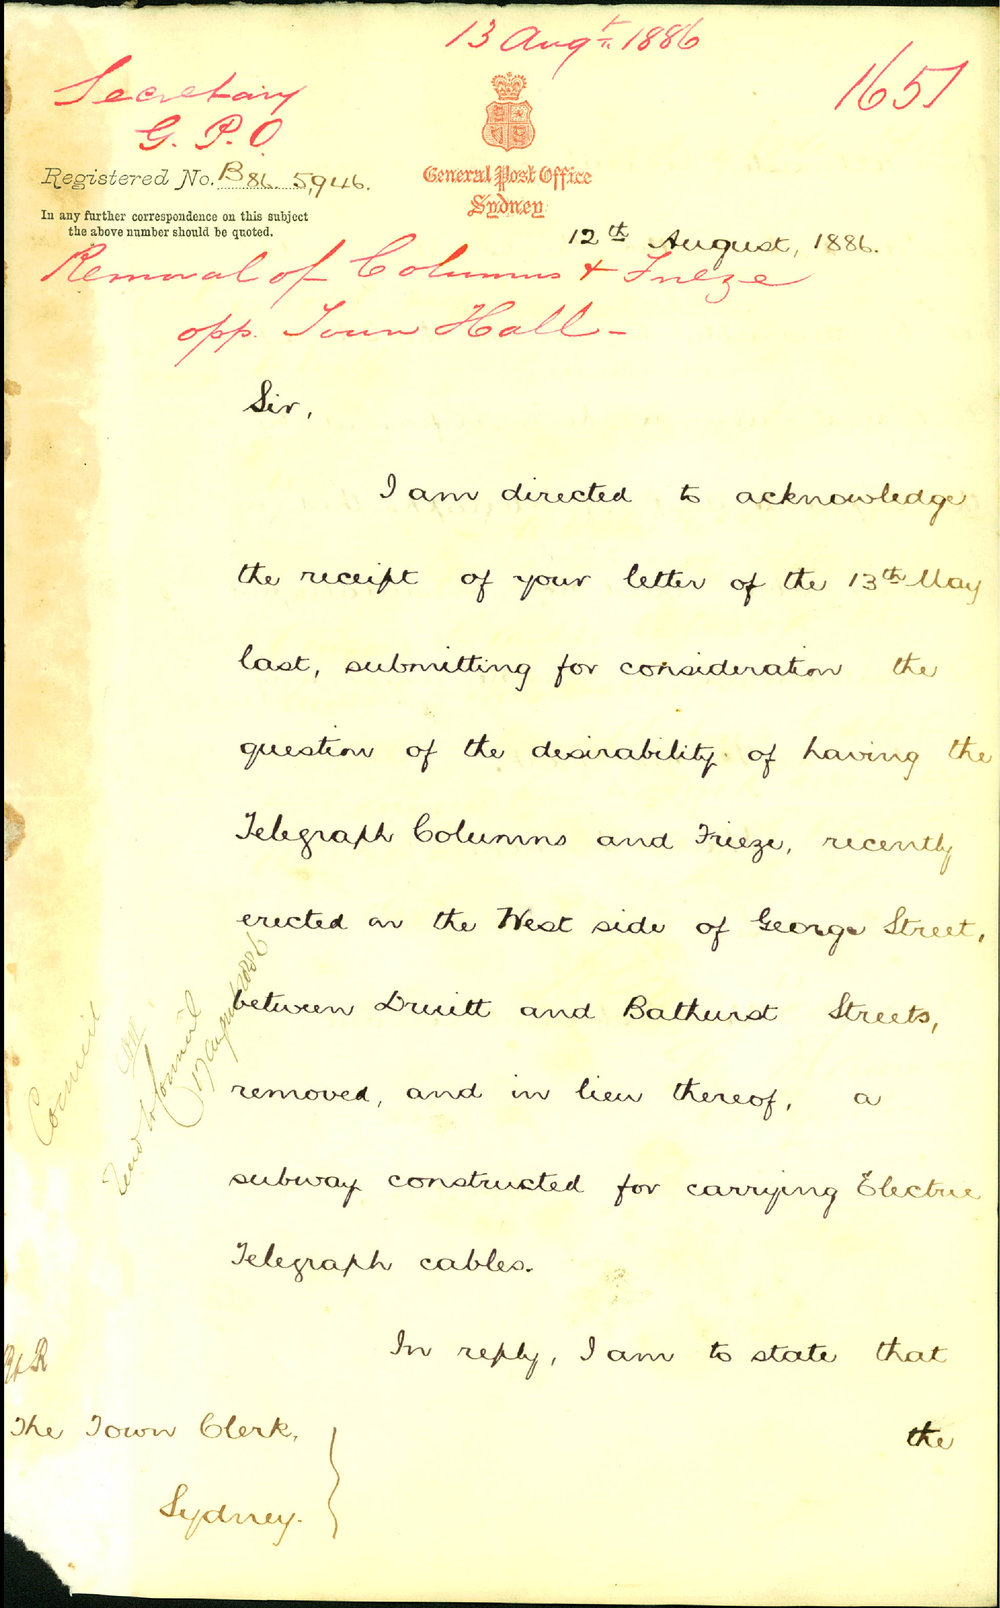 13 Augt 1886
1651
Secretary
G. P. O
Registered No. B86. 5,946.
In any further correspondence on this subject
the above number should be quoted.
General Post Office
Sydney
12th August, 1886.
Removal of Columns & Frieze
opp. Town Hall-
Sir,
I am directed to acknowledge
the receipt of your letter of the 13th May
last, submitting for consideration the
question of the desirability of having the
Telegraph Columns and Frieze, recently
erected on the West side of George Street,
between Druitt and Bathurst Streets,
removed, and in lieu thereof, a
subway constructed for carrying Electric
Telegraph cables.
In reply, I am to state that
the
Council
Council
17 August 1886
The Town Clerk,
Sydney.